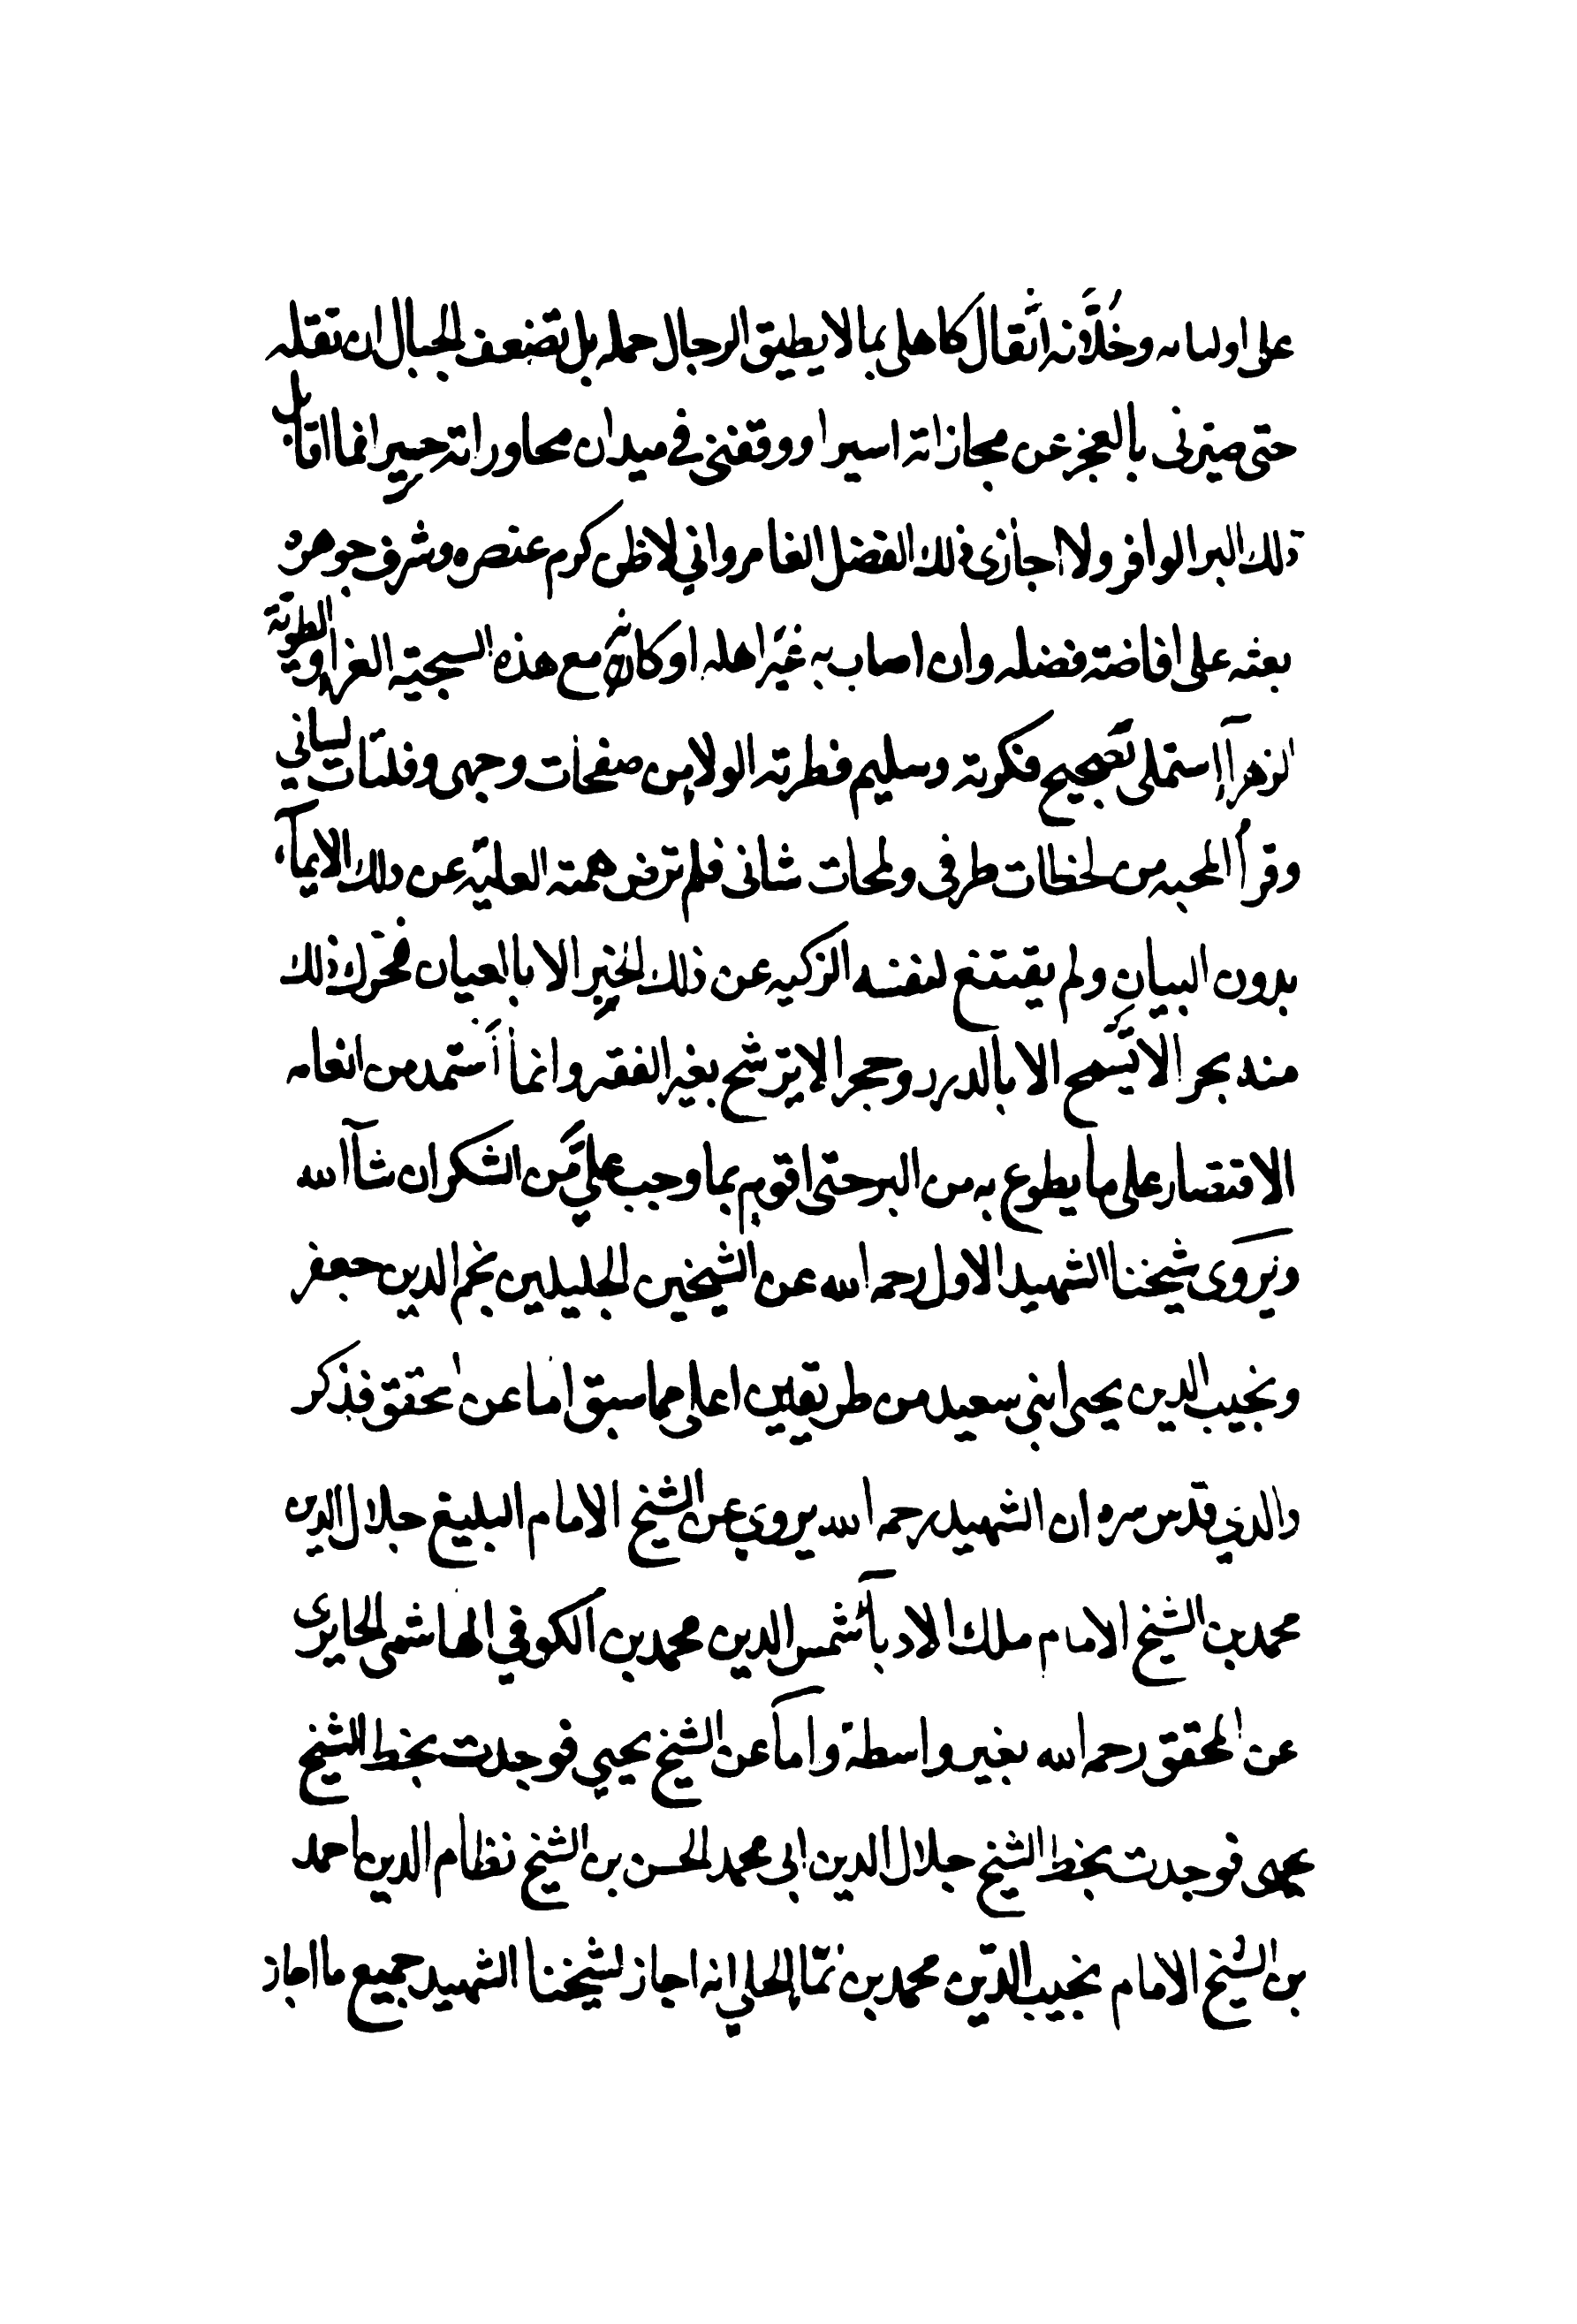 على اوليائه وخلّانه اثقال كاهلى بما لا يطيق الرجال حمله بل تضعف الجبال ان تقله
حتى صيرنى بالعجز عن مجازاته اسيرا ووقفنى في ميدان محاوراته حسيرا فما اقابل
ذلك البر الوافر ولا اجازى ذلك الفضل الغامر واني لاظن كرم عنصره وشرف جوهره
بعثه على افاضة فضله وان اصاب به غير اهله او كانه مع هذه السجية الغراء والطوية
الزهرآء استملى بصحيح فكرته وسليم فطرته الولا من صفحات وجهى وفلتات لساني
وقرأ المحبه من لحظات طرفى ولمحات شانى فلم ترض همته العليّة عن ذلك الايمآء
بدون البيان ولم يقتنع لنفسه الزكيه عن ذلك الخبر الا بالعيان فحرّك ذلك
منه بحرا لا يسمح الا بالدرر وحجرا لا يترشح بغير الفقر وانما أستمد من انعامه
الاقتصار على ما يطوع به من البر حتى اقوم بما وجب عليّ من الشكر ان شآ الله
ويروى شيخنا الشهيد الاول رحمه الله عن الشيخين الجليلين نجم الدين جعفر
ونجيب الدين يحيى ابنى سعيد من طريقين اعلى مما سبق اما عن المحقق فذكر
والدي قدس سره ان الشهيد رحمه الله يروي عن الشيخ الامام البليغ جلال الدين
محمد بن الشيخ الامام ملك الادبآء شمس الدين محمد بن الكوفي الهاشمى الحايرى
عن المحقق رحمه الله بغير واسطة واما عن الشيخ يحيي فوجدت بخط الشيخ
فوجدت بخط الشيخ جلال الدين ابى محمد الحسن بن الشيخ نظام الدين احمد
بن الشيخ الامام نجيب الدّين محمد بن نمّا الحلي انه اجاز لشيخنا الشهيد جميع ما اجاز